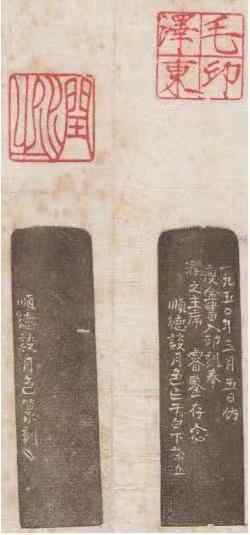 毛澤東印
潤之
一九五〇年三月五日仿
瘦金書入印刻奉
潤之主席 睿鑒存念
順德談月色 于白下
順德談月色篆刻